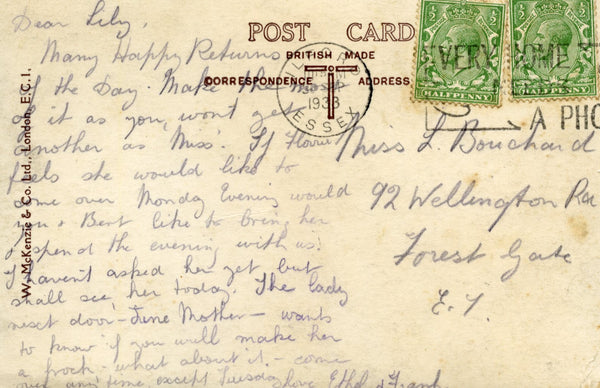 POST CARD
BRITISH MADE
CORRESPONDENCE
ADDRESS
W. McKenzie & Co. Ltd., London, E.C.1.
Dear Lily,
Many Happy Returns
of the Day. Make the most
of it as you won't get
another as Miss. If Florrie
feels she would like to
come over Monday Evening would
you & Bert like to bring her
& spend the evening with us.
I haven't asked her yet but
shall see her today. The lady
next door - June Mother - wants
to know if you will make her
a frock - what about it. - come
over any time except Tuesday love Ethel & Frank
Miss L Bouchard
92 Wellington Rd
Forest Gate
E. 7.
1933
ESSEX
½ ½
HALFPENNY
½ ½
HALFPENNY
EVERY HOME
A PHO